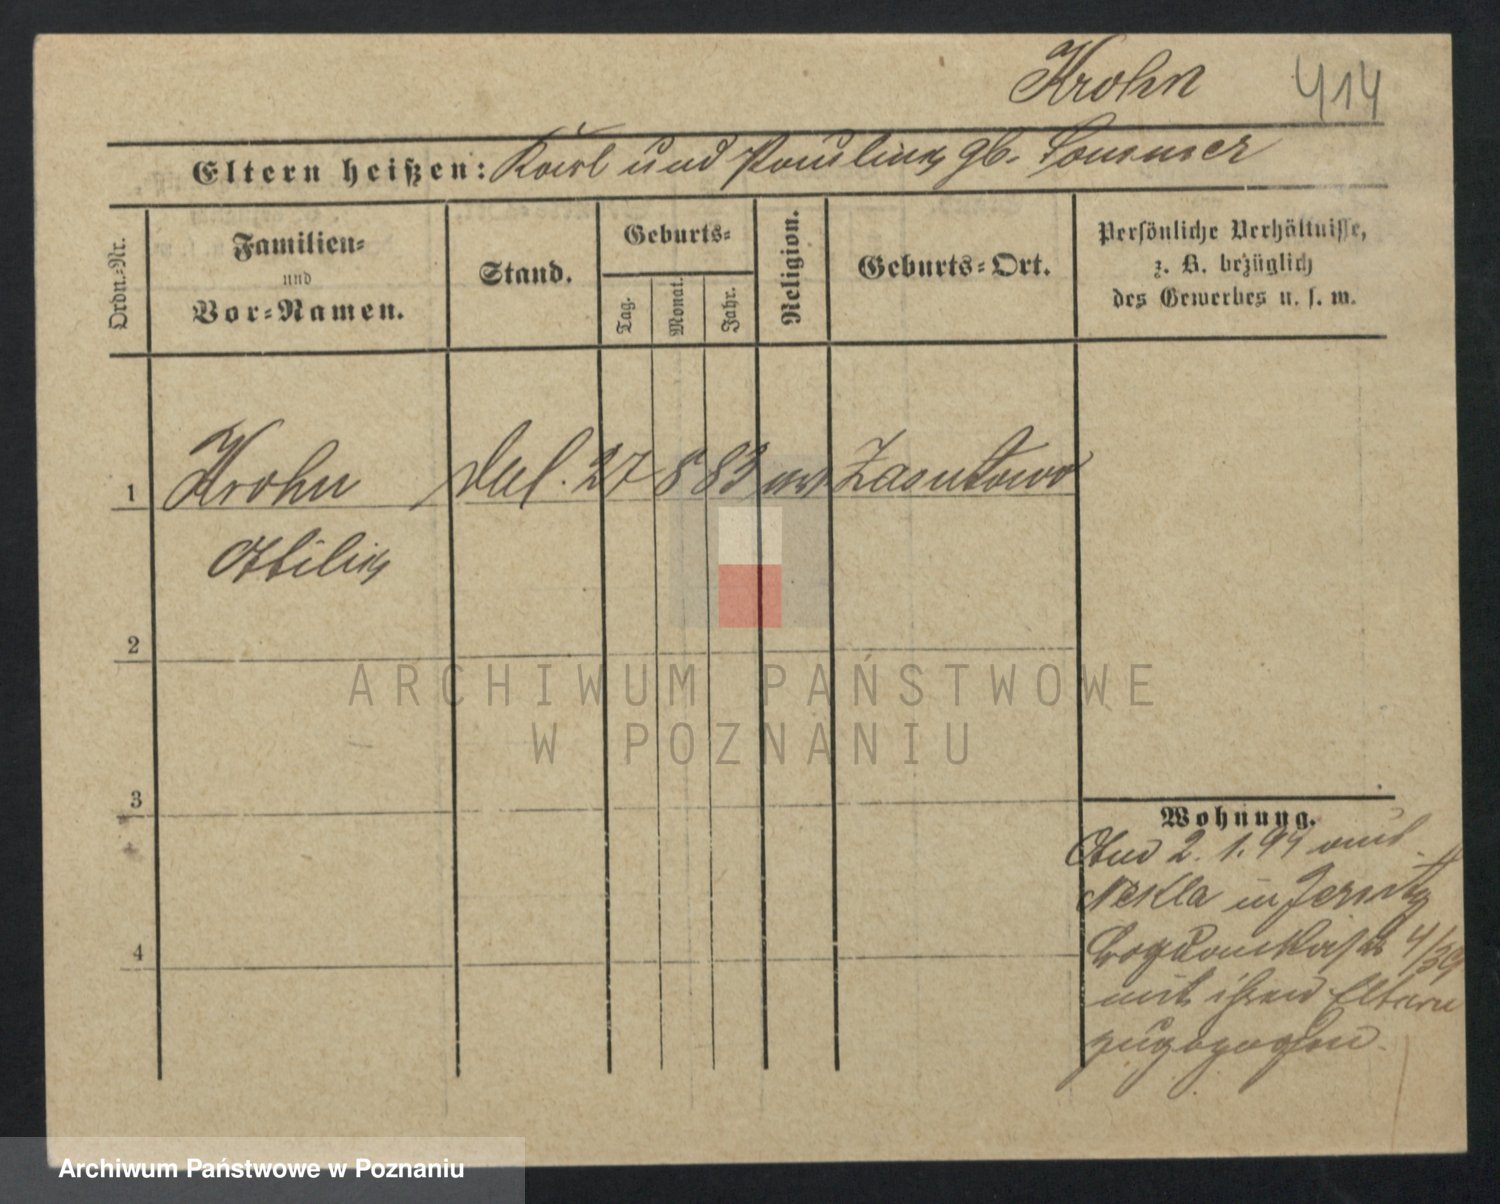 Krohn 414
Eltern heißen: Karl und Pauline gb. Sommer
Ordn.-Nr.
Familien-
und
Vor-Namen.
Stand.
Geburts-
Tag.
Monat.
Jahr.
Religion.
Geburts-Ort.
Persönliche Verhältnisse,
z. B. bezüglich
des Gewerbes u. s. w.
1 Krohn 27 8 83 Zasutowo
Ottilie
2
3
4
Wohnung.
2. 1. 94 aus
Nekla in Jersitz
4/39
mit ihren Eltern
zugezogen.
ARCHIWUM PAŃSTWOWE
W POZNANIU
Archiwum Państwowe w Poznaniu